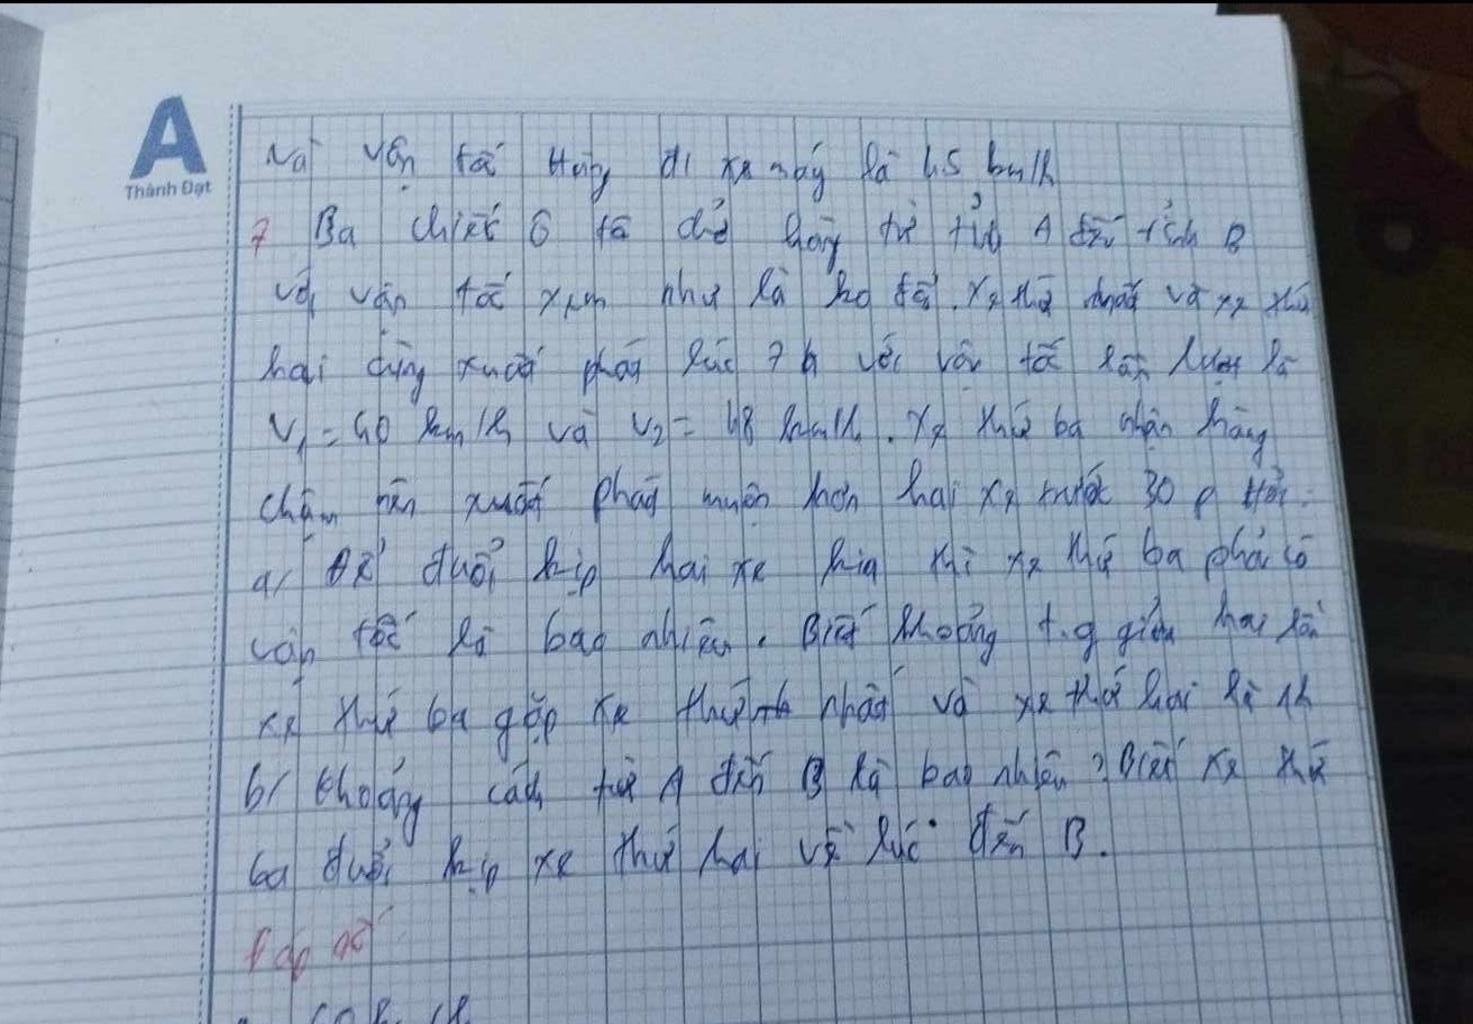 A
Thành Đạt
Và vận tốc Hùng đi xe máy là 45 km/h
7 Ba chiếc ô tô chở hàng từ tỉnh A đến tỉnh B
với vận tốc xem như là ko đổi. Xe thứ nhất và xe thứ
hai cùng xuất phát lúc 7 h với vận tốc lần lượt là
V₁ = 40 km/h và V₂ = 48 km/h. Xe thứ ba nhận hàng
chậm nên xuất phát muộn hơn hai xe trước 30 p Hỏi:
a/ Để đuổi kịp hai xe kia thì xe thứ ba phải có
vận tốc là bao nhiêu. Biết khoảng t.g giữa hai lần
xe thứ ba gặp xe thứ nhất và xe thứ hai là 1h
b/ Khoảng cách từ A đến B là bao nhiêu? Biết xe thứ
ba đuổi kịp xe thứ hai về lúc đến B.
Đáp số